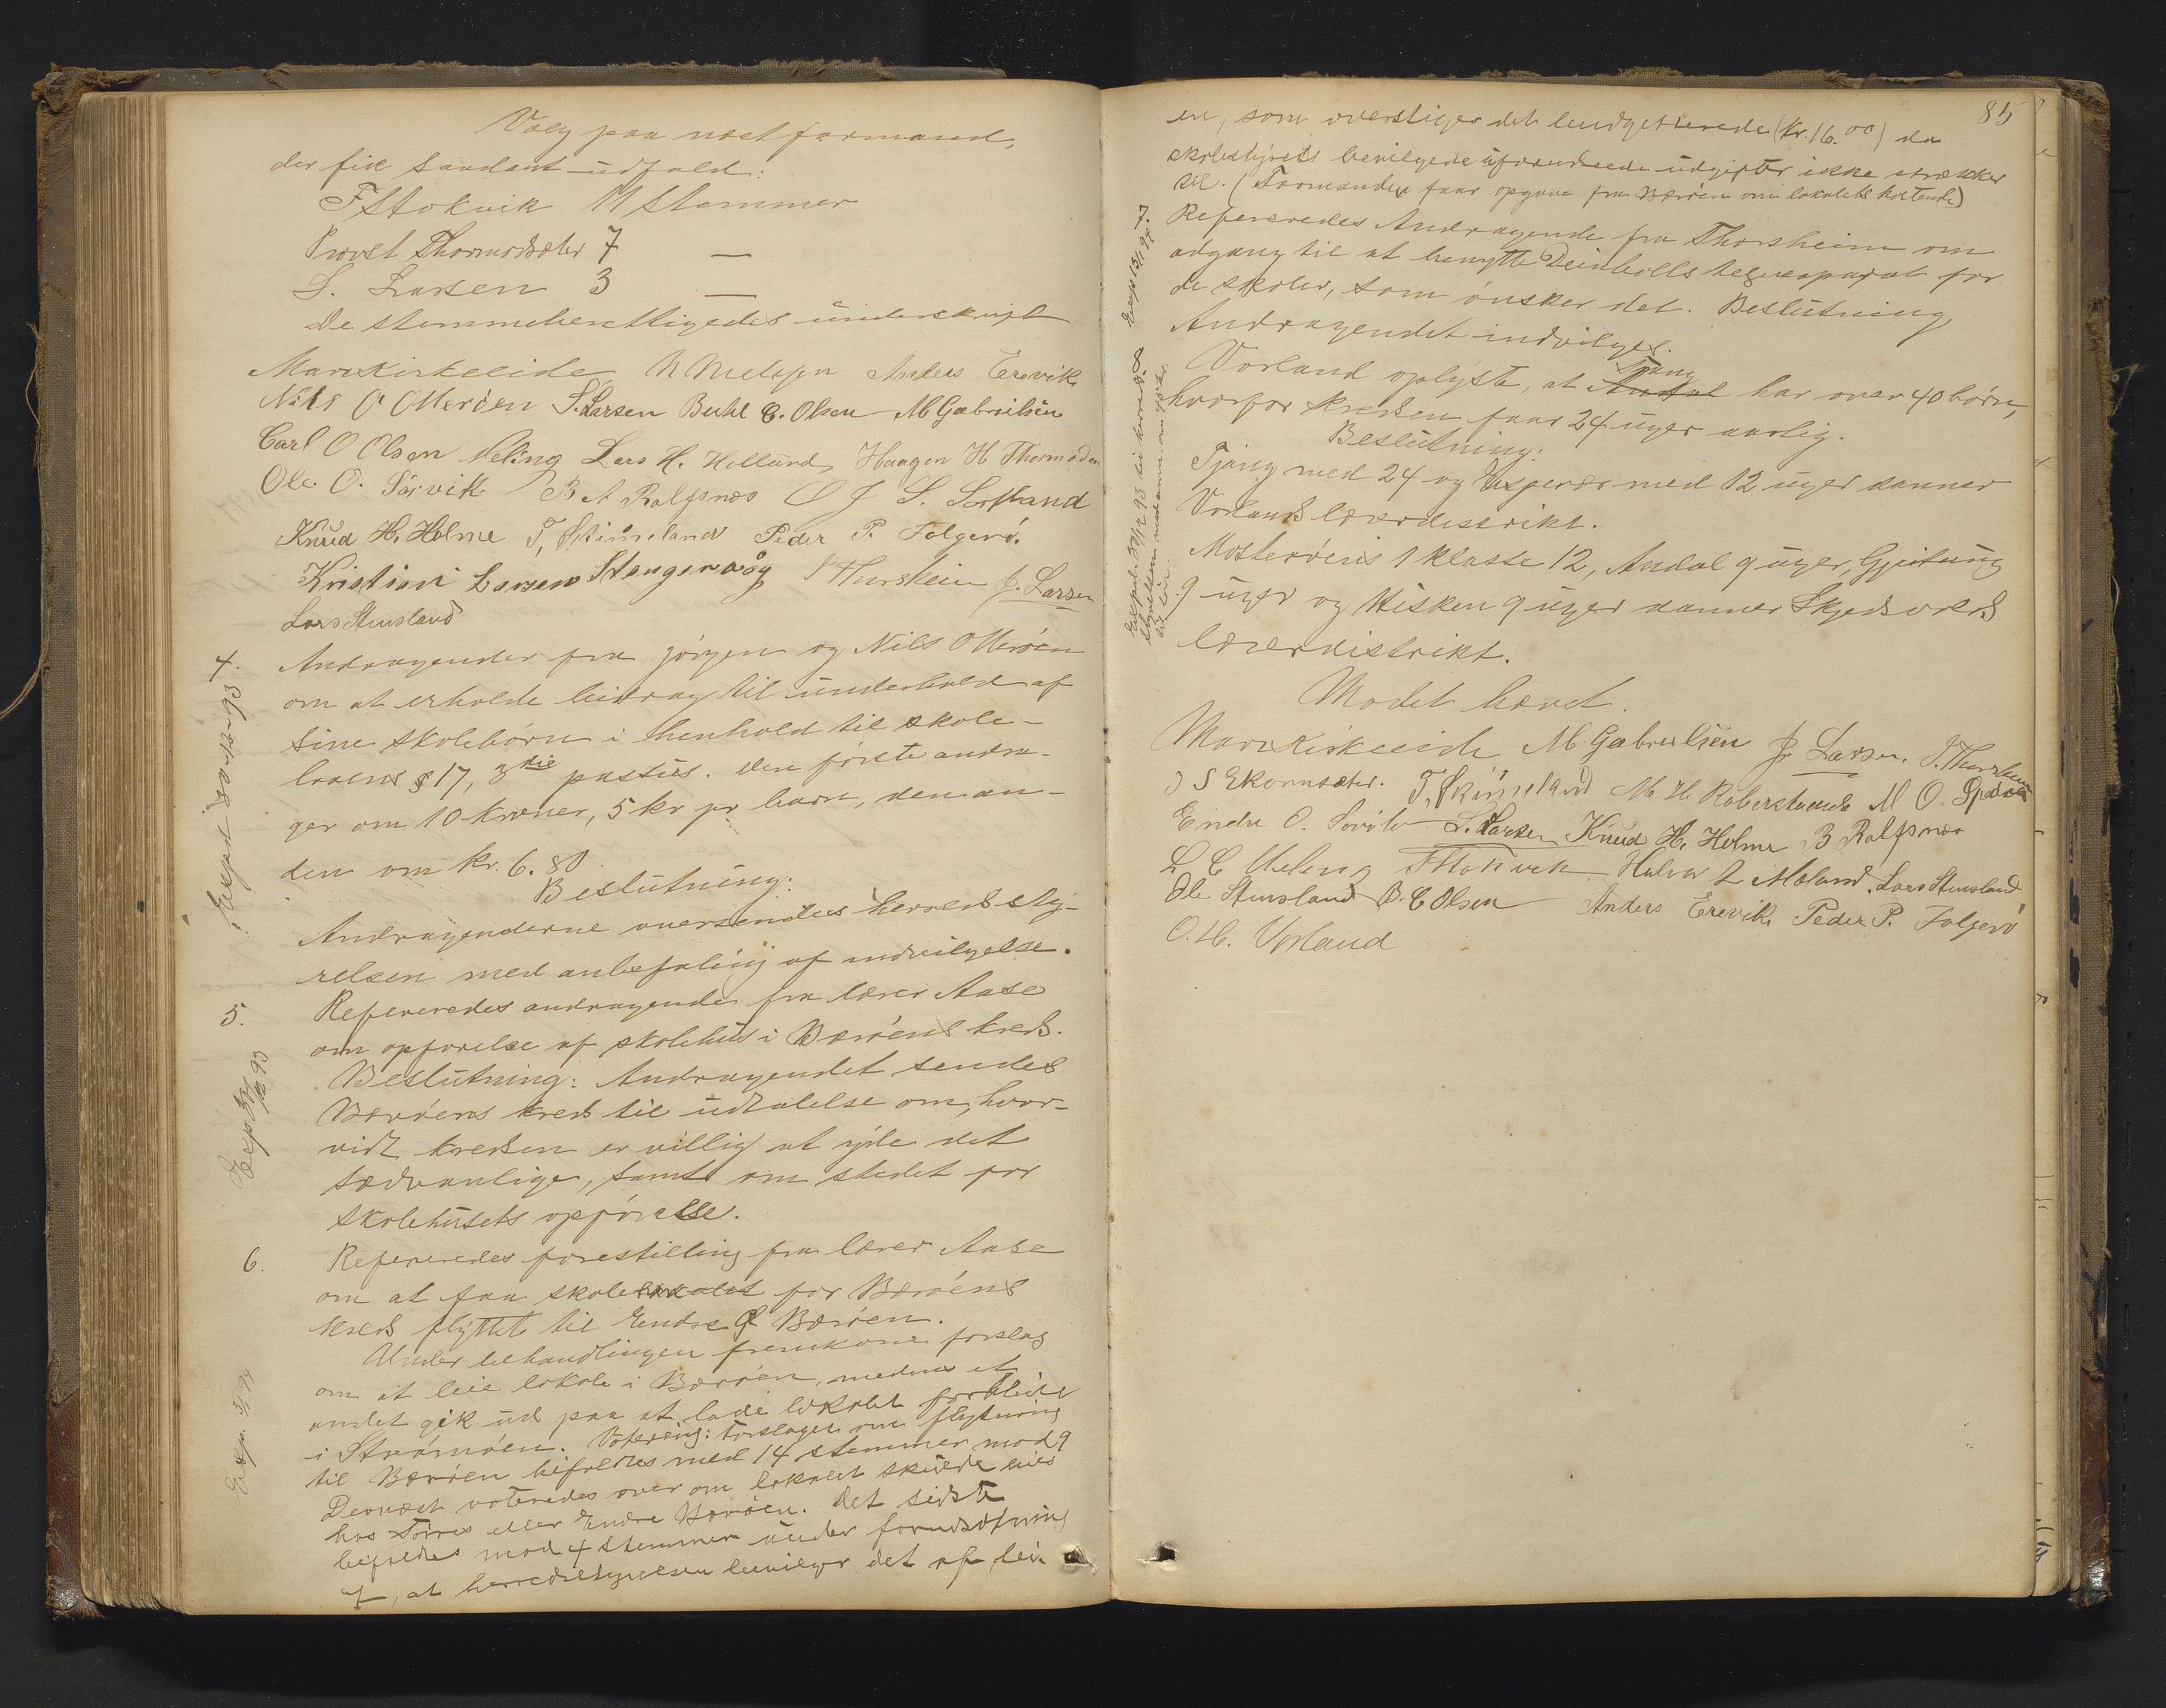 Valg paa næstformand,
der fik saadant udfald:
F Stokvik 11 stemmer
Provst Thormodsæter 7 —
S. Larsen 3 —
De stemmeberettigedes underskrift
Marx Kirkeeide, N Nielssen Anders Erevik,
Nils O Otterøen S. Larsen Buhl C. Olsen M Gabrielsen
Carl O Olsen Meling Lars H. Hollund, Haagen H Thormodsen
Ole O. Sørvik B A Rolfsnæs O J S. Sortland
Knud H. Holme T. Skimmeland Peder P. Folgerø.
Kristian Larsen Stangervaag J Thorsheim J. Larsen
Lars Stensland
4.
Expd 30-12-93
Andragender fra Jørgen og Nils Otterøen
om at erholde bidrag til underhold af
sine skolebørn i henhold til skole-
lovens § 17, 3die passus. den første andra-
ger om 10 kroner, 5 kr pr barn, den an-
den om kr. 6.80
Beslutning:
Andragenderne oversendes herredssty-
relsen med anbefaling af indvilgelse.
5.
Exp 30/12 93
Refereredes andragende fra lærer Aase
om opførelse af skolehus i Bærøens kreds.
Beslutning: Andragendet sendes
Bærøens kreds til udtalelse om, hvor-
vidt kredsen er villig at yde det
sædvanlige, samt om stedet for
skolehusets opførelse.
6.
Refereredes forestilling fra lærer Aase
om at faa skolelokalet for Bærøens
kreds flyttet til Endre Bærøen.
Under behandlingen fremkom forslag
om at leie lokale i Bærøen, medens et
andet gik ud paa at lade lokalet forblive
i Strømøen. Votering: Forslaget om flytning
til Bærøen bifaldtes med 14 stemmer mod 9
Dernæst voteredes over om lokalet skulde leies
hos Tørres eller Endre Bærøen. Det sidste
bifaldtes mod 4 stemmer under forudsætning
af, at herredsstyrelsen bevilger det af lei-
85
en, som overstiger det budgetterede (kr. 16.00) da
skolestyrets bevilgede uforudseede udgifter ikke strækker
til. (Formanden faar opgave fra Bærøen om lokalets kostende)
7.
Refereredes Andragende fra Thorsheim om
adgang til at benytte Deinbolls tegneapparat for
de skoler, som ønsker det. Beslutning
Andragendet indvilges.
8.
Vorland oplyste, at Andal Tjong har over 40 børn,
hvorfor kredsen faar 24 uger aarlig.
Beslutning:
Tjong med 24 og Espevær med 12 uger danner
Vorlands lærerdistrikt.
Mosterøens 1 klasse 12, Andal 9 uger, Gjeitung
9 uger og Hisken 9 uger danner Skjedsvolds
lærerdistrikt.
Mødet hævet.
Marx Kirkeeide M Gabrielsen J. Larsen. J. Thorsheim
J S Ekornsæter. T. Skimmeland M H Roberstrand M O
Endre O. S. Larsen Knud H. Holme B Rolfsnæs
L C Meling F Stokvik Halvor L Moland, Lars Stensland
Ole Stensland B. C Olsen Anders Erevik, Peder P. Folgerø
O. H. Vorland